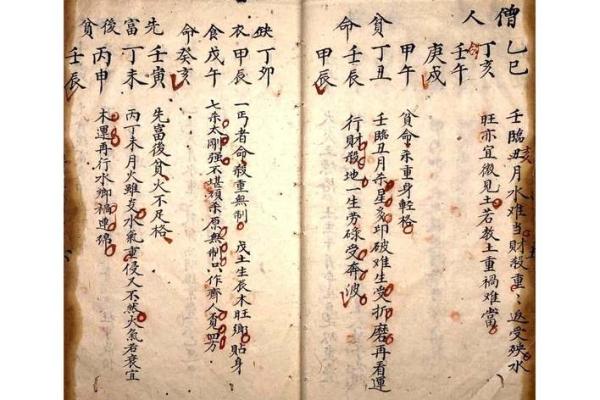 僧人命
乙巳
丁亥
壬午
庚戌
壬臨丑亥月水难当財殺重返受殃水
旺亦宜微見土若教土重禍难當
貧命
甲午
丁丑
壬辰
甲辰
貧命杀重身輕格
壬臨丑月杀星多卯破难生受折磨再看運
行財殺地一生劳碌受奔波
缺衣食命
丁卯
甲辰
戊午
癸亥
一丐者命殺重無制 戊土生辰木旺鄉貼身
七杀太剛强不堪頑杀原無制只作齊人覓四方
先富後貧
壬寅
丁未
丙申
壬辰
先富後貧火不足格
丙丁未月火雖炎水氣重侵又不然火氣若衰宜
木運再行水鄉禍連綿